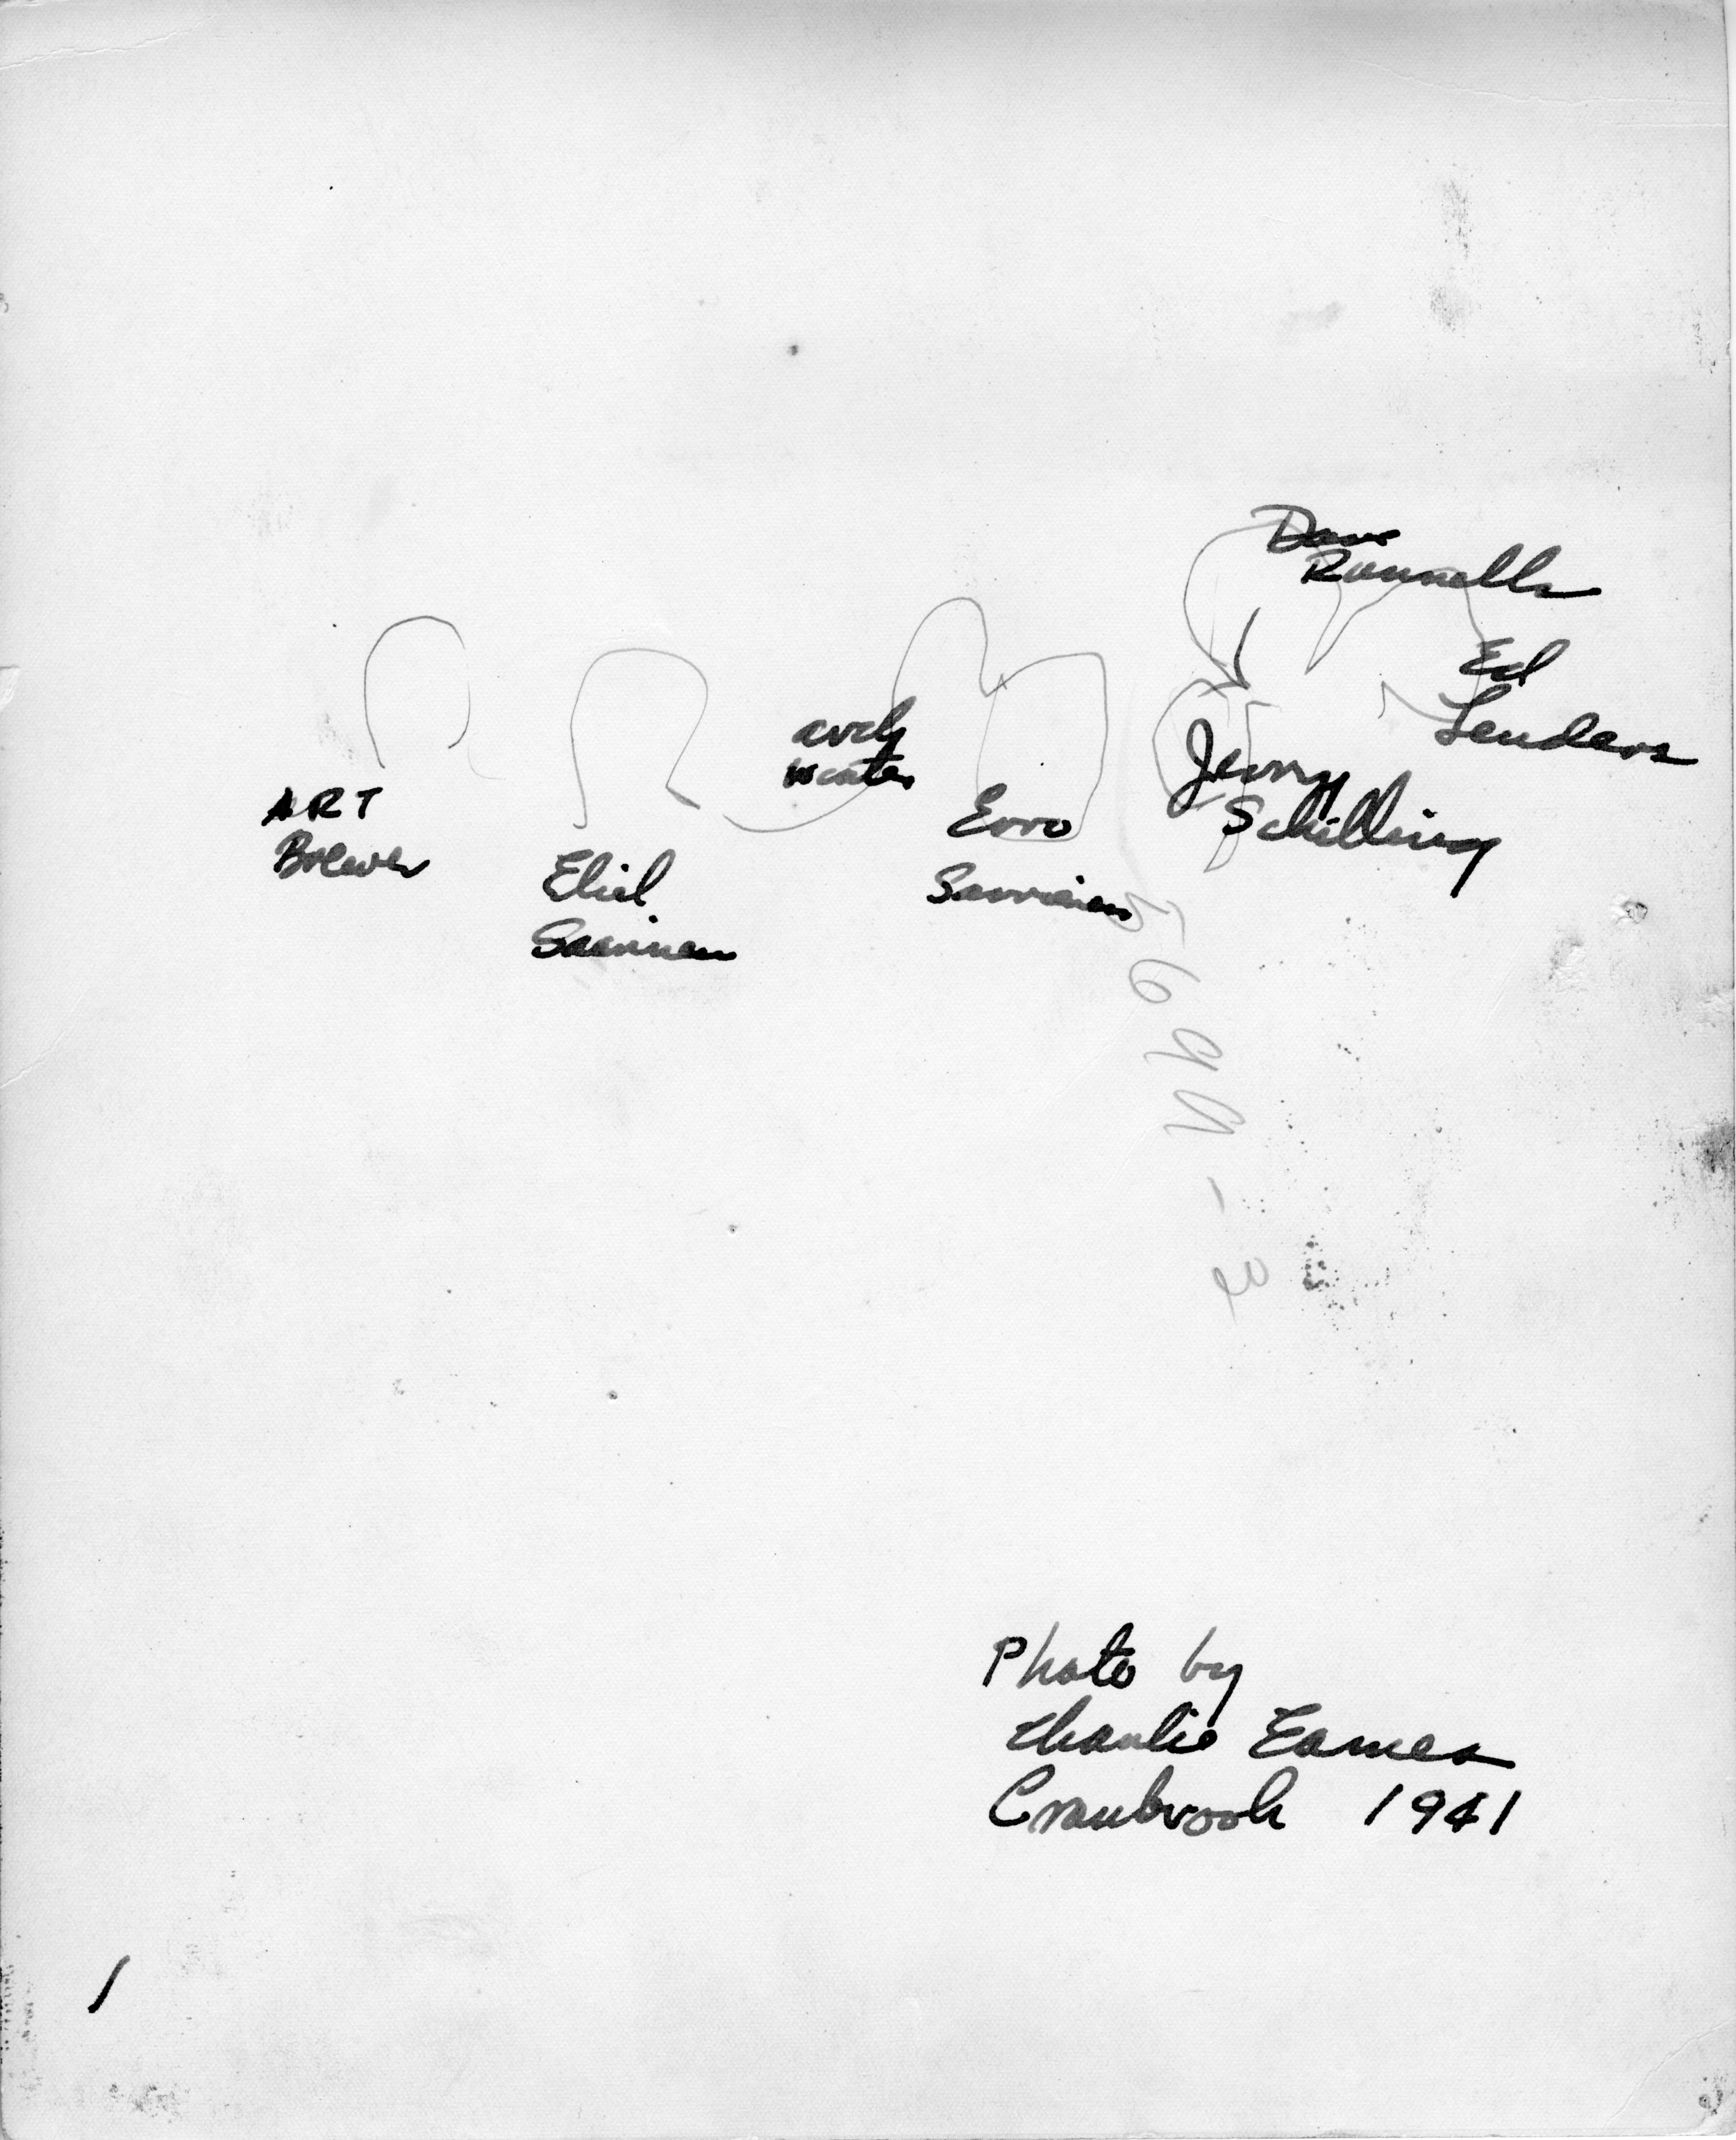 Dave
Runnells
Ed
Lenders
Arch
Winter
Jerry
Schilling
ART
Brewer
Eero
Saarinen
Eliel
Saarinen
5699-2
Photo by
Charlie Eames
Cranbrook 1941
1